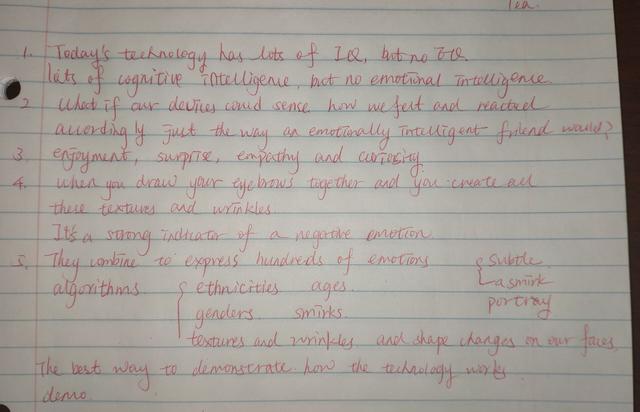 Tea.
1. Today's technology has lots of IQ, but no EQ.
lots of cognitive intelligence, but no emotional intelligence
2 What if our devices could sense how we felt and reacted
accordingly just the way an emotionally intelligent friend would?
3. enjoyment, surprise, empathy and curiosity.
4. when you draw your eyebrows together and you create all
these textures and wrinkles.
It's a strong indicator of a negative emotion
5. They combine to express hundreds of emotions
subtle
algorithms. ethnicities ages.
a smirk
genders. smirks.
portray
textures and wrinkles and shape changes on our faces.
The best way to demonstrate how the technology works
demo.